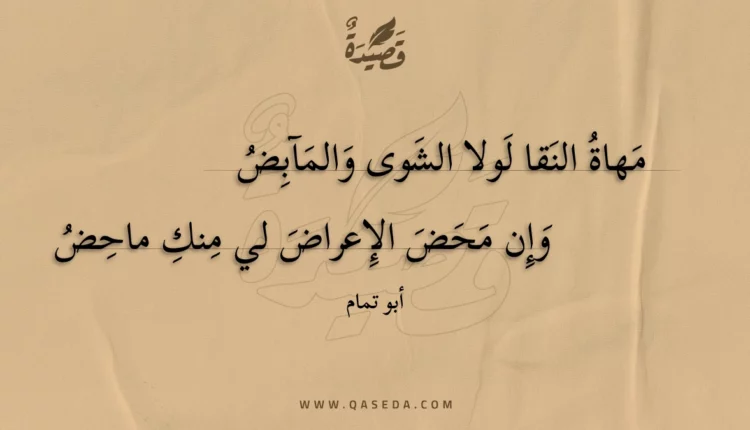 قَصِيدَةٌ
مَهاةُ النَقا لَولا الشَوى وَالمَآبِضُ
وَإِن مَحَضَ الإِعراضَ لي مِنكِ ماحِضُ
أبو تمام
WWW.QASEDA.COM